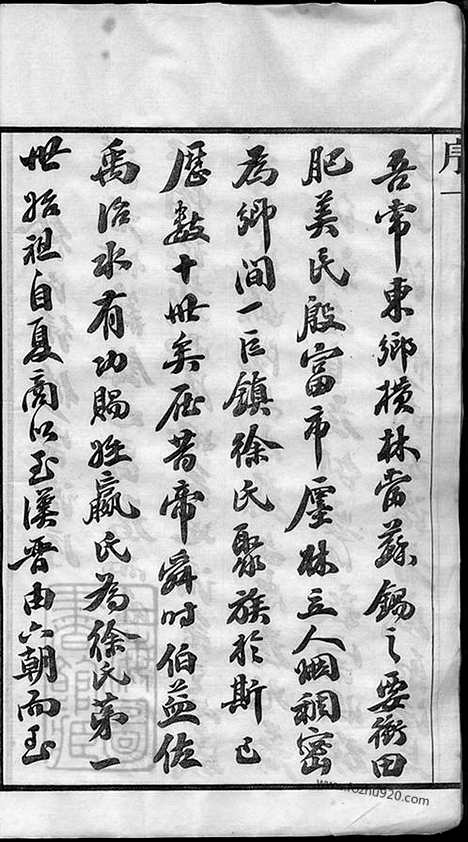 序一
吾常東鄉橫林當蘇錫之要衝田
肥美民殷富市廛林立人烟稠密
為鄉間一巨鎮徐氏聚族於斯已
歷數十世矣在昔帝舜時伯益佐
禹治水有功賜姓嬴氏為徐氏第一
世始祖自夏商以至漢晉由六朝而至
www.fozhu920.com